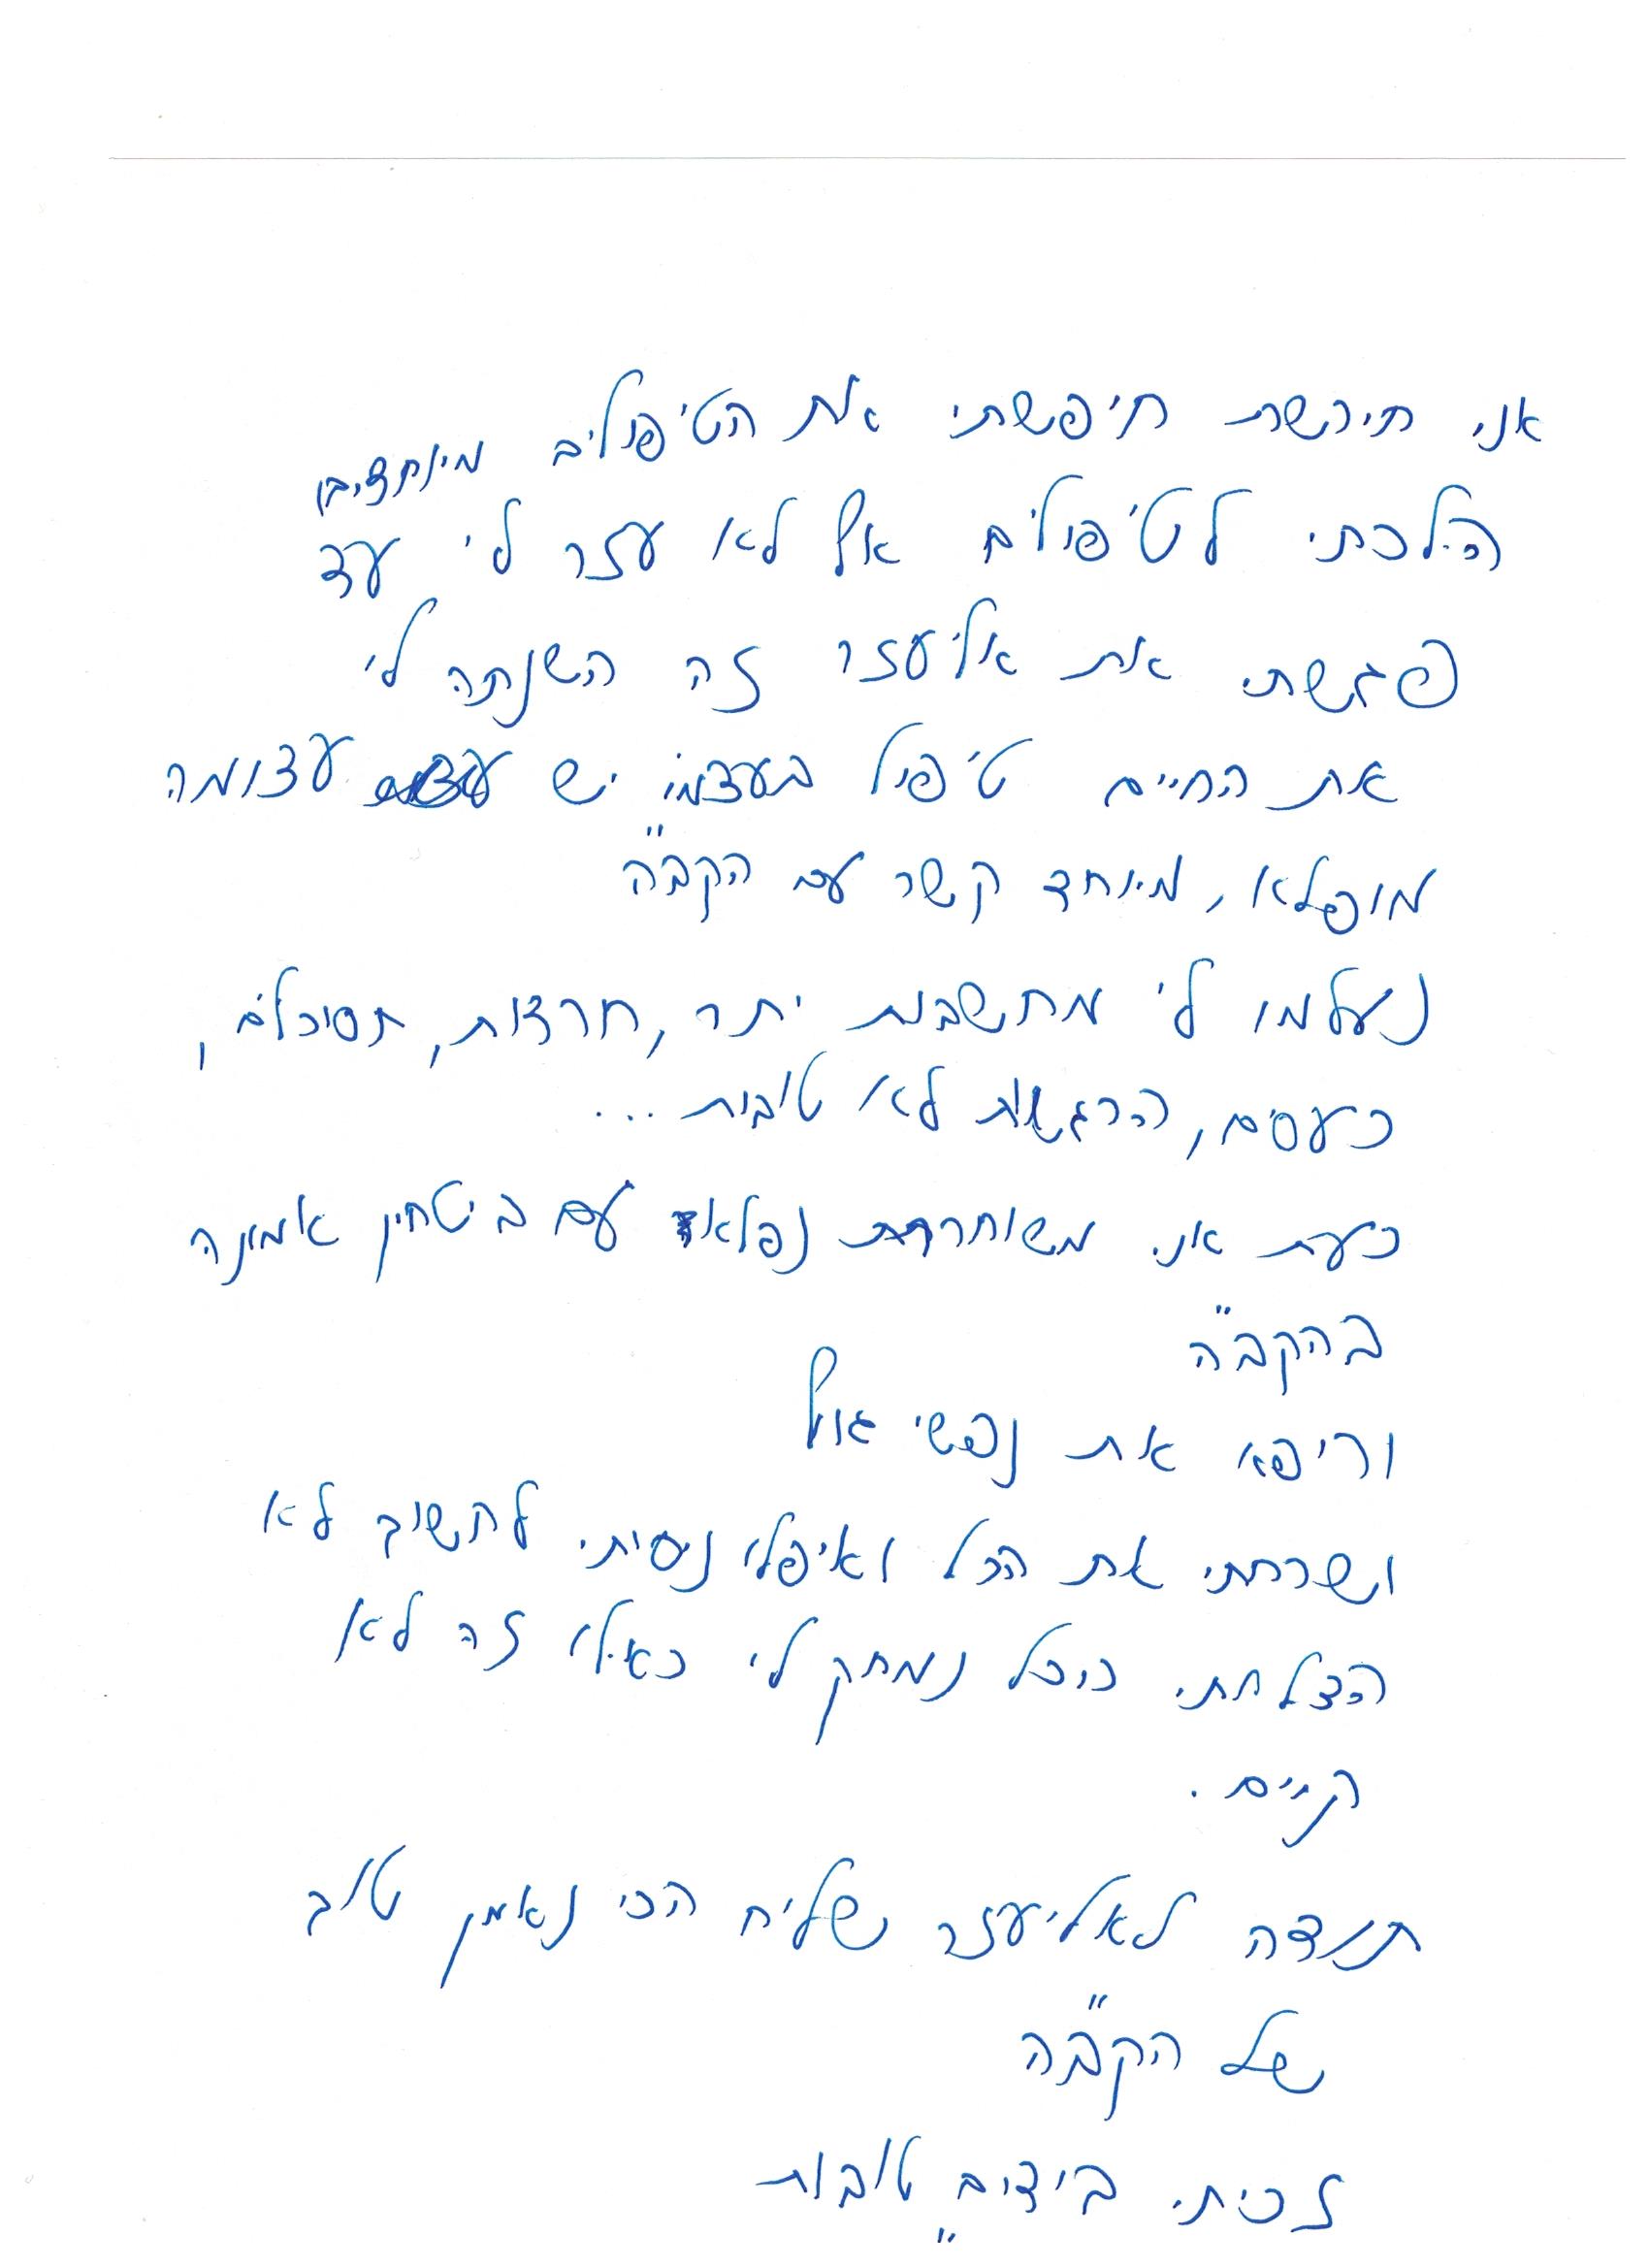 אני חירשת חיפשתי את הטיפולים מיוחדים
הלכתי לטיפולים אך לא עזר לי עד
פגשתי את אליעזר זה השנתה לי
את החיים טיפול בעצמו יש עצומה
מופלא, מיוחד קשר עם הקב"ה
נעלמו לי מחשבות יתר, חרדות, תסוכלים,
כעסים, הרגשות לא טובות ...
כעת אני משוחררת נפלא עם ביטחון אמונה
בהקב"ה
וריפא את נפשי גוף
ושכחתי את הכל ואיפלו ניסיתי לחשוב לא
הצלחתי כוכל נמחק לי כאילו זה לא
קיים.
תודה לאליעזר שליח הכי נאמן טוב
של הקב"ה
זכיתי בידים טובות